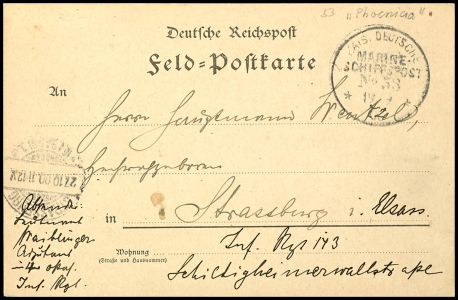 53 „Phoenicia“.
Deutsche Reichspost
Feld-Postkarte
KAIS. DEUTSCHE
MARINE-
SCHIFFSPOST
No 53
An
Herrn Hauptmann Wentzel,
Hochwohlgeboren
in Strassburg i. Elsass.
Wohnung
(Straße und Hausnummer)
Inf. Rgt 143
Schiltigheimerwallstraße
27.10.00.11-12V
Absender:
Leutnant
Adjutant
Inf. Rgt.